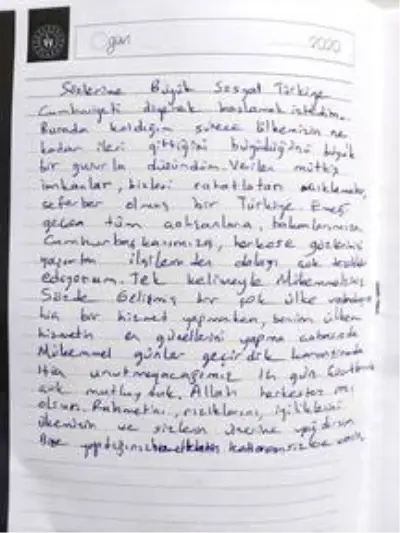 gün 2020
Sözlerime Büyük Sosyal Türkiye
Cumhuriyeti diyerek başlamak istedim.
Burada kaldığım sürece Ülkemizin ne
kadar ileri gittiğini büyüdüğünü büyük
bir gururla düşündüm. Verilen müthiş
imkanlar, bizleri rahatlatan
seferber olmuş bir Türkiye. Emeği
geçen tüm çalışanlara, bakanlarımıza
Cumhurbaşkanımıza, herkese gözlerimi
yaşartan ilgilerinden dolayı çok teşekkür
ediyorum. Tek kelimeyle Mükemmelsiniz
Sözde Gelişmiş bir çok ülke vatandaşına
hiç bir hizmet yapmazken, benim ülkem
hizmetin en güzellerini yapma çabasında
Mükemmel günler geçirdik karantinada
Hiç unutmayacağımız 14 gün
çok mutluyduk. Allah herkesten razı
olsun. Rahmetini, rızıklarını, iyiliklerini
ülkemizin ve sizlerin üzerine yağdırsın
Bize yaptığınız